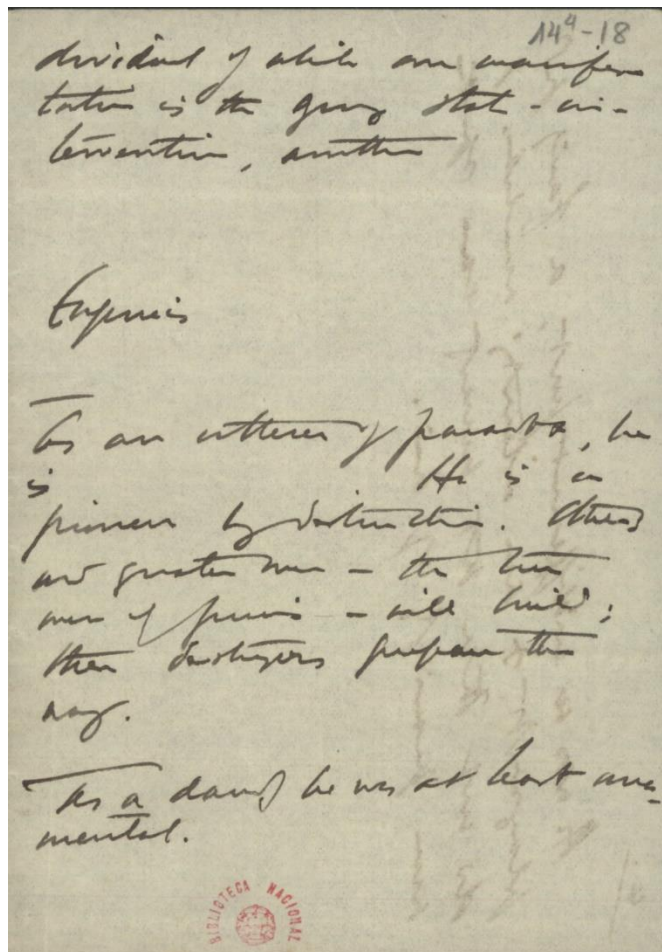 14⁴-18
dividual of which one manifes
tation is the growing state-in-
tervention, another
Eugenics
As an utterer of paradox, he
is He is a
pioneer by destruction. Others
and greater men – the true
men of genius – will build;
these destroyers prepare the
way.
As a dandy he was at least orna-
mental.
BIBLIOTECA NACIONAL